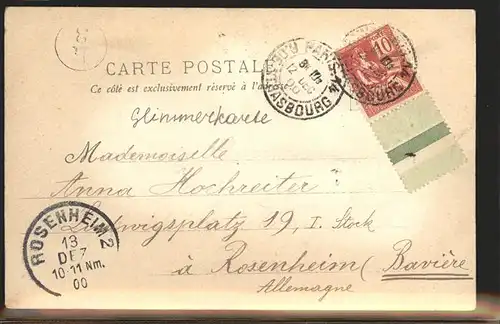 CARTE POSTALE
Ce côté est exclusivement réservé à l'adresse
PARIS
STRASBOURG
12
DEC
00
10
Glimmerkarte
Mademoiselle
Anna Hochreiter
Ludwigsplatz 19, I. Stock
à Rosenheim (Bavière
Allemagne
ROSENHEIM 2
13
DEZ
10-11 Nm.
00